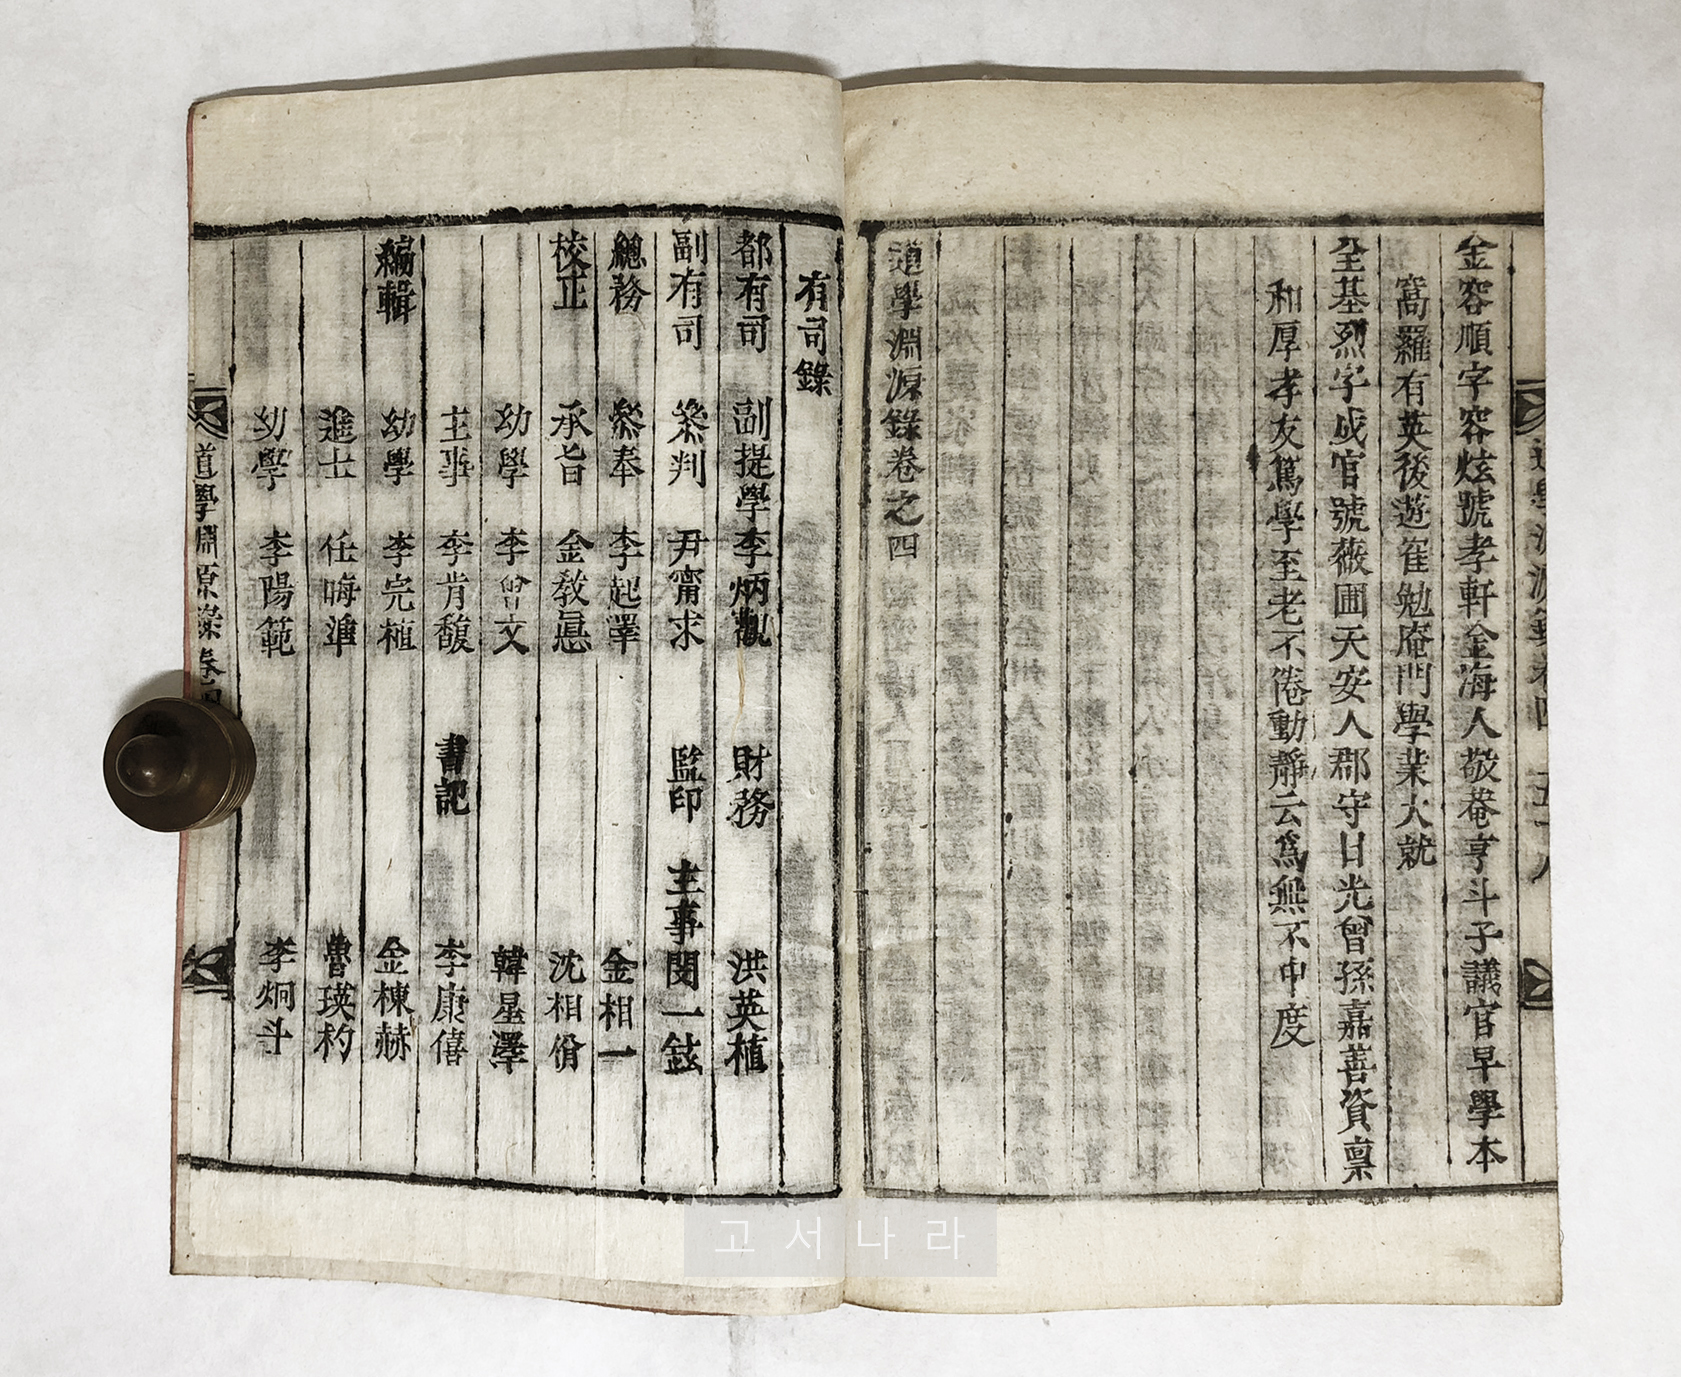 金容順字容炫號孝軒金海人敬菴亨斗子議官早學本
窩羅有英後遊崔勉庵門學業大就
全基烈字成官號薇圃天安人郡守日光曾孫嘉善資稟
和厚孝友篤學至老不倦動靜云爲無不中度
道學淵源錄卷之四
有司錄
都有司 副提學 李炳觀 財務 洪英植
副有司 叅判 尹甯求 監印 主事 閔一鉉
總務 叅奉 李起澤 金相一
校正 承旨 金敎悳 沈相佾
幼學 李曾文 韓星澤
主事 李肯馥 書記 李康僖
編輯 幼學 李完植 金棟赫
進士 任晦準 魯瑛杓
幼學 李陽範 李炯斗
道學淵原錄卷四
고서나라